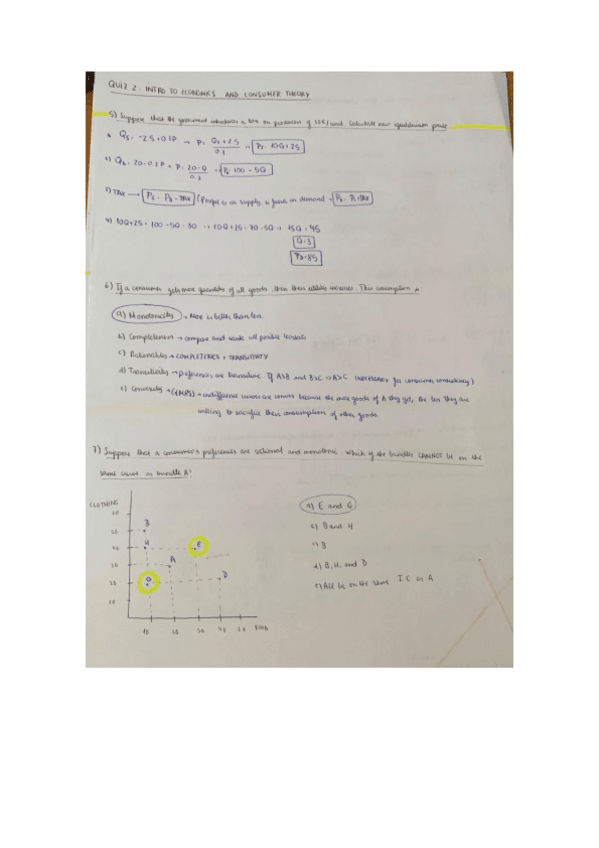 QUIZ 2: INTRO TO ECONOMICS AND CONSUMER THEORY
5) Suppose that the government introduces a tax on producers of 30€/unit. Calculate new equilibrium price
Qs = -2.5+0.1P → P = Qs+2.5 / 0.1 → Ps = 10Q+25
2) QD = 20-0.2P → P = 20-Q / 0.2 → PD = 100-5Q
3) TAX → Ps = PD - TAX
4) 10Q+25 = 100-5Q-30 → 10Q+25 = 70-5Q → 15Q = 45
Q=3
PD=85
6) If a consumer gets more quantities of all goods, then their utility increases. This assumption is
a) Monotonicity → MORE is better than less.
b) Completeness → compare and rank all possible
c) Rationality → COMPLETENESS + TRANSITIVITY
d) Transitivity → preferences are transitive If A>B and B>C → A>C (NECESSARY for consumer consistency)
e) Convexity → indifference curves are convex because the more goods of A they get, the less they are
willing to sacrifice their consumption of other goods.
7) Suppose that a consumer's preferences are rational and monotonic. Which of the bundles CANNOT be on the
same curve as bundle A?
CLOTHING
a) E and G
B
b) B and H
H
E
c) B
A
d) B, H, and D
G
D
e) All lie on the same I.C as A
10 20 30 40 50 FOOD